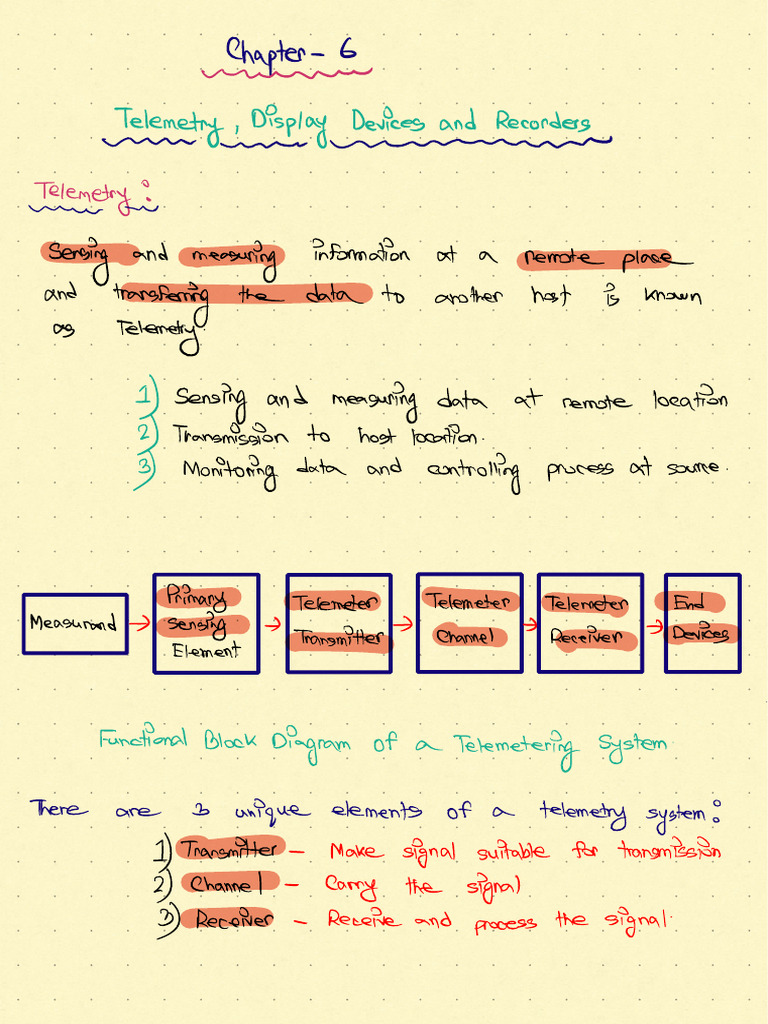 Chapter - 6
Telemetry, Display Devices and Recorders
Telemetry:
Sensing and measuring information at a remote place
and transferring the data to another host is known
as Telemetry.
1) Sensing and measuring data at remote location
2) Transmission to host location.
3) Monitoring data and controlling process at source.
Measurand → Primary Sensing Element → Telemeter Transmitter → Telemeter Channel → Telemeter Receiver → End Devices
Functional Block Diagram of a Telemetering System
There are 3 unique elements of a telemetry system:
1) Transmitter - Make signal suitable for transmission
2) Channel - Carry the signal
3) Receiver - Receive and process the signal.